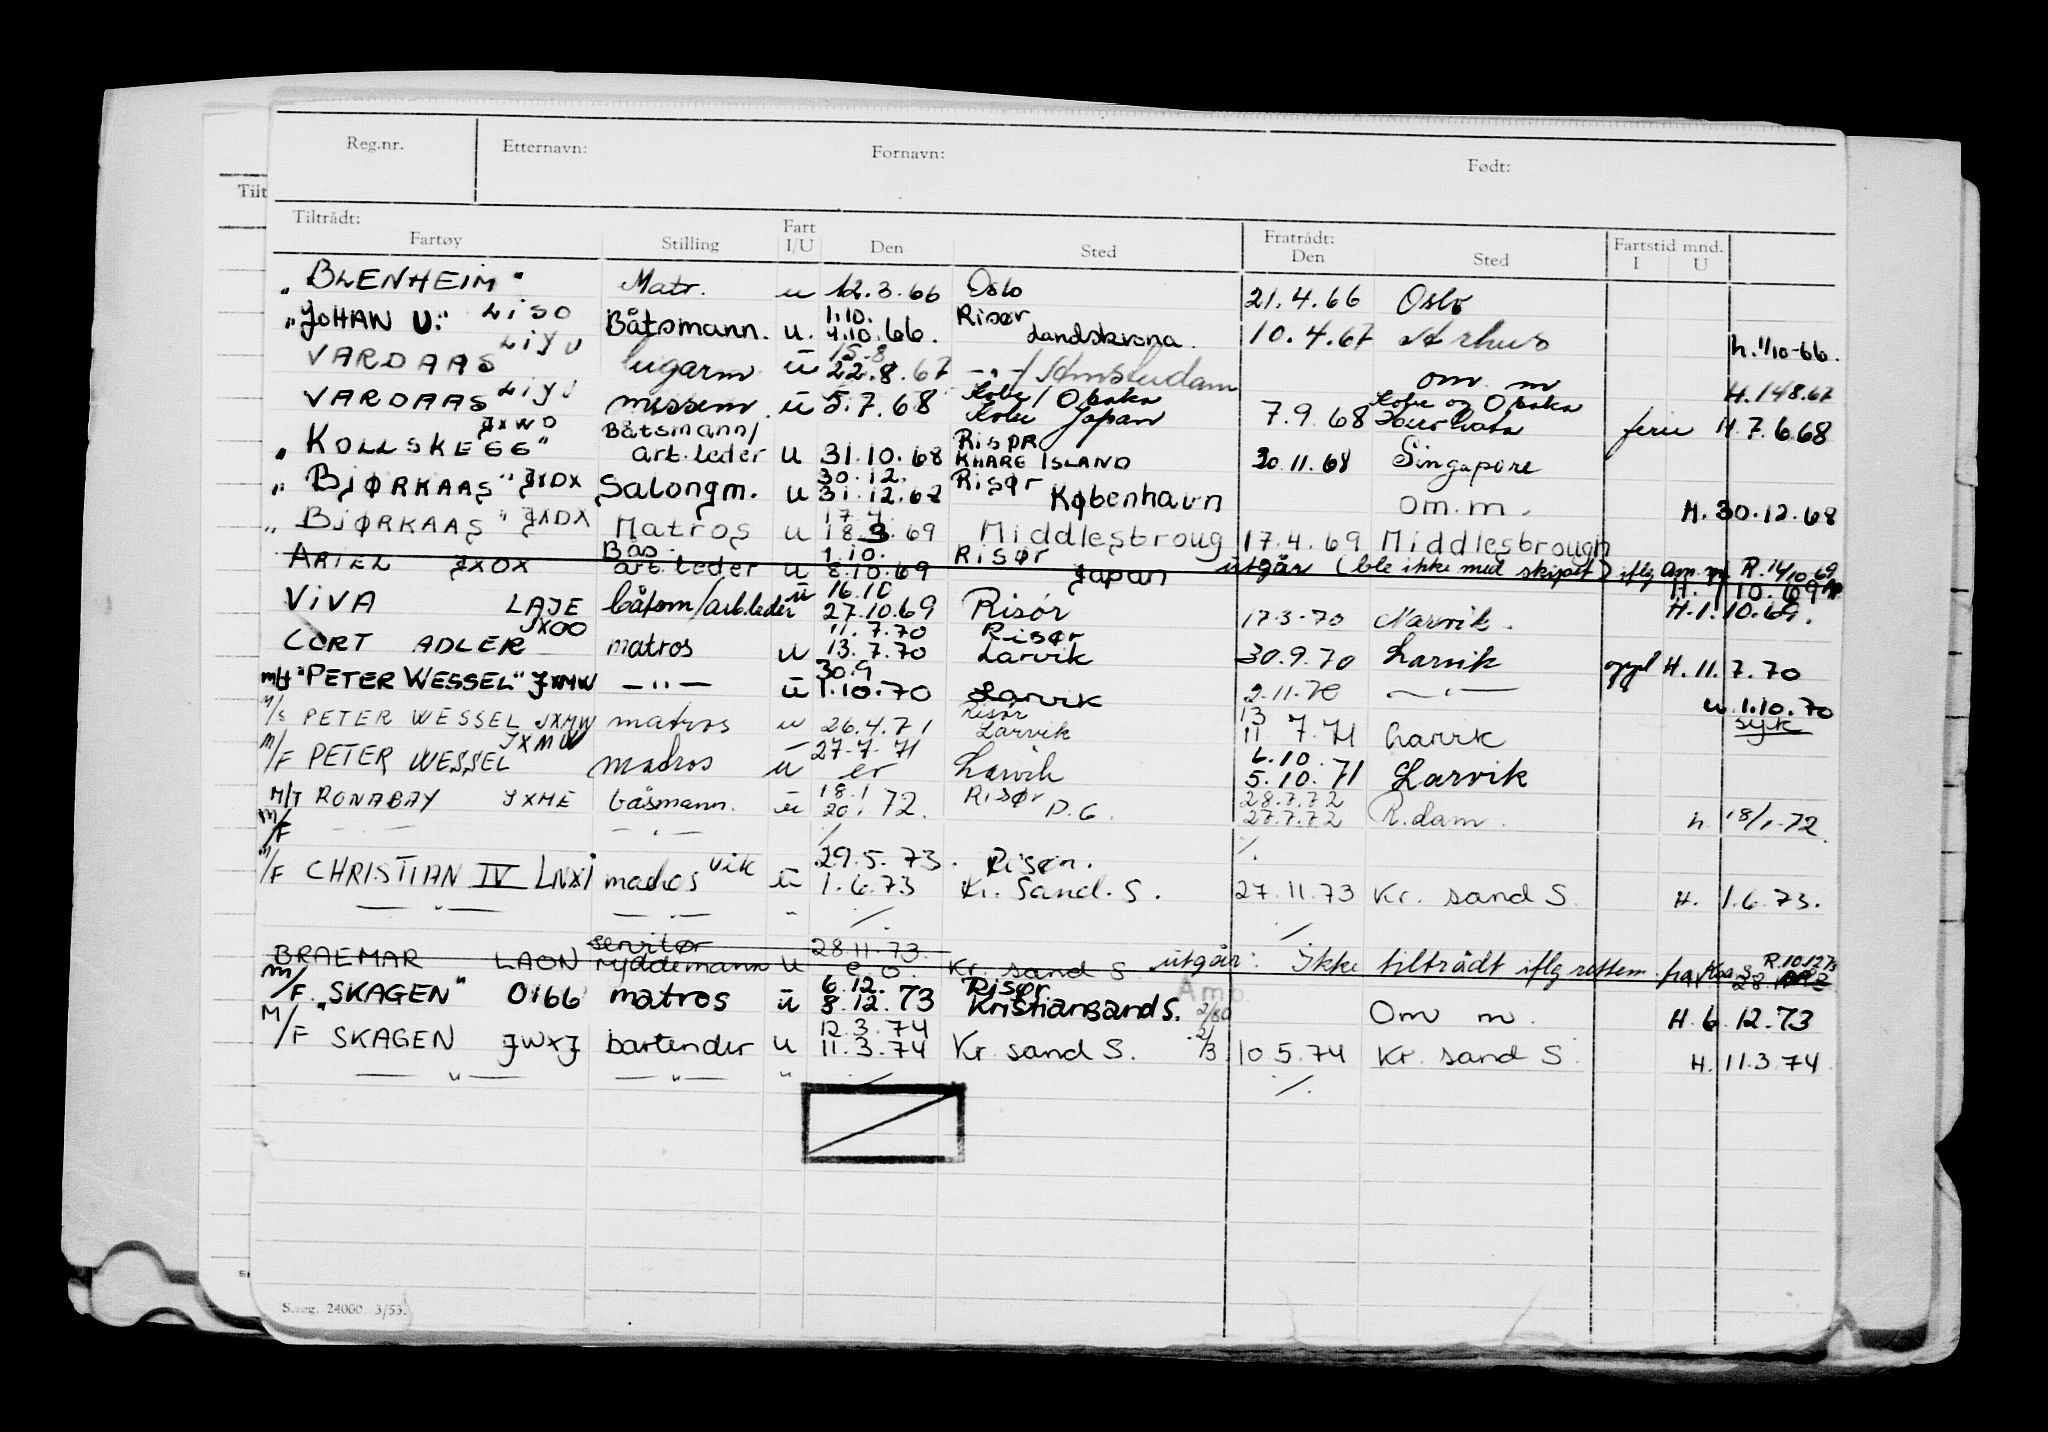 Reg.nr. Etternavn: Fornavn: Født:
Tilt
Tiltrådt: Fart Fratrådt: Fartstid mnd.
Fartøy Stilling I/U Den Sted Den Sted I U
„BLENHEIM" Matr. u 12.3.66 Oslo 21.4.66 Oslo
LISO 1.10. Risør
„JOHAN U." Båtsmann. u. 4.10.66. Landskrona. 10.4.67 Århus h. 1/10-66.
LIYU 15.8
VARDAAS lugarm ū 22.8.67 -"-/Amsterdam om. m H. 148.67
LIYU Kobe/Osaka Kobe og Osaka
VARDAAS messem. ū 5.7.68 Kobe Japan 7.9.68 ferie H.7.6.68
JXWO Båtsmann/ RISØR
„KOLLSKEGG" arb.leder u 31.10.68 KHARG ISLAND 30.11.68 Singapore
30.12. Risør
„BJØRKAAS" JXDX Salongm. u 31.12.68 København om.m. H.30.12.68
17.4
„BJØRKAAS" JXDX Matros u 18.3.69 Middlesbroug 17.4.69 Middlesbrough
Bås. 1.10. Risør
ARIEL JXOX arb.leder u 8.10.69 Japan utgår (ble ikke med skipet) iflg am.m. R.14/10 69
H. 1.10.69
16.10
VIVA LAJE båtsm/arb.leder ū 27.10.69 Risør 17.3.70 Narvik. H.1.10.69.
JXOO 11.7.70 Risør
CORT ADLER matros u 13.7.70 Larvik 30.9.70 Larvik oppl H.11.7.70
30.9
m/f "PETER WESSEL" JXMW -"- ū 1.10.70 Larvik 2.11.70 -"- u.1.10.70
Risør 13 syk
M/S PETER WESSEL JXMW matros u 26.4.71 Larvik 11 7.71 Larvik
JXMW 27.7.71 6.10.
M/F PETER WESSEL matros u er Larvik 5.10.71 Larvik
18.1 Risør 28.7.72
M/T RONABAY JXME båsmann. ū 20.1.72. P.G. 27.7.72 R.dam. h. 18/1.72.
M/F - - -"- ./. ./.
29.5.73. Risør.
M/F CHRISTIAN IV LNXI matros vik ū 1.6.73 Kr.Sand.S. 27.11.73 Kr. sand S. H. 1.6.73.
-"- -"- " ./. ./.
servitør 28.11.73.
BRAEMAR LAON ryddemann u e.o. Kr. sand S utgår: Ikke tiltrådt iflg rettem. fra R.10.1273
6.12. Risør Amo.
M/F. „SKAGEN" 0166 matros ū 8.12.73 Kristiansand S. 2/80 Om m. H.6.12.73
12.3.74
M/F SKAGEN JWXJ bartender u 11.3.74 Kr. sand S. 2/3 10.5.74 Kr. sand S. H.11.3.74
-"- -"- " ./. ./.
S.reg. 24000 3/53.